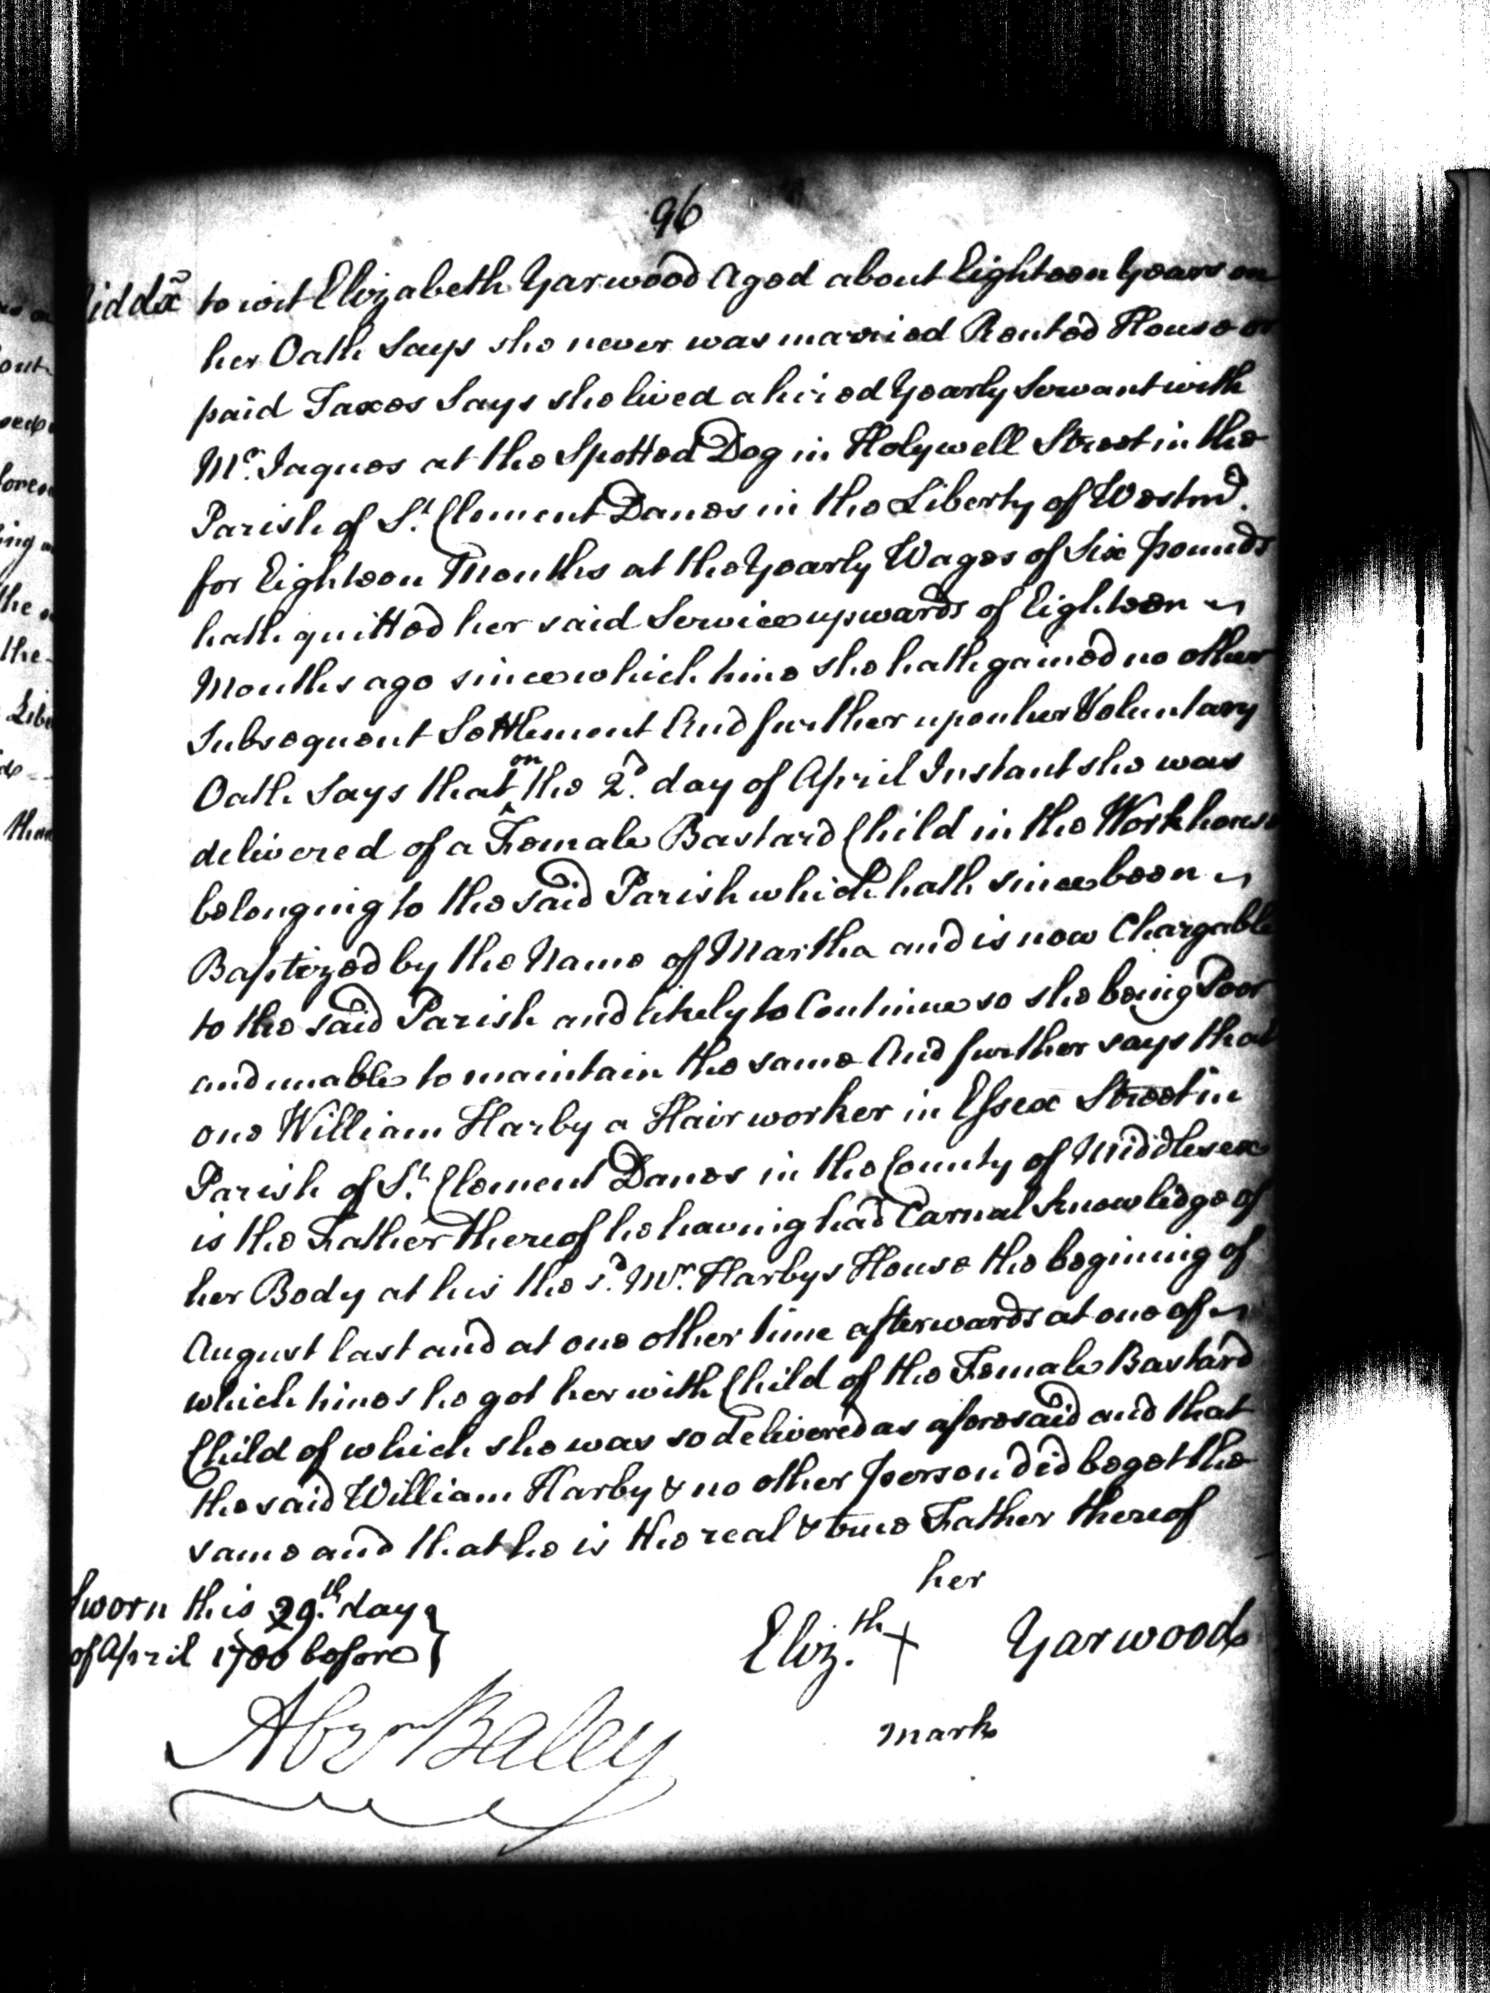 96
iddx to wit Elizabeth Yarwood Aged about Eighteen Years on
her Oath Says she never was married Rented House or
paid Taxes Says she lived a hired Yearly Servant with
Mr. Jaques at the Spotted Dog in Holywell Street in the
Parish of St. Clement Danes in the Liberty of Westmr.
for Eighteen Months at the Yearly Wages of Six pounds
hath quitted her said Service upwards of Eighteen
Months ago since which time she hath gained no other
Subsequent Settlement And further upon her Voluntary
Oath Says that on the 2d. day of April Instant she was
delivered of a Female Bastard Child in the Workhouse
belonging to the said Parish which hath since been
Baptized by the Name of Martha and is now Chargable
to the said Parish and likely to Continue so she being Poor
and unable to maintain the same And further says that
one William Harby a Hair worker in Essex Street in
Parish of St. Clement Danes in the County of Middlesex
is the Father thereof he having had Carnal knowledge of
her Body at his the sd. Mr. Harbys House the begining of
August last and at one other time afterwards at one of
which times he got her with Child of the Female Bastard
Child of which she was so delivered as aforesaid and that
the said William Harby & no other person did beget the
same and that he is the real & true Father thereof
Sworn this 29th. day
of April 1780 before
her
Eliz.th X Yarwood
mark
Abrm Baley